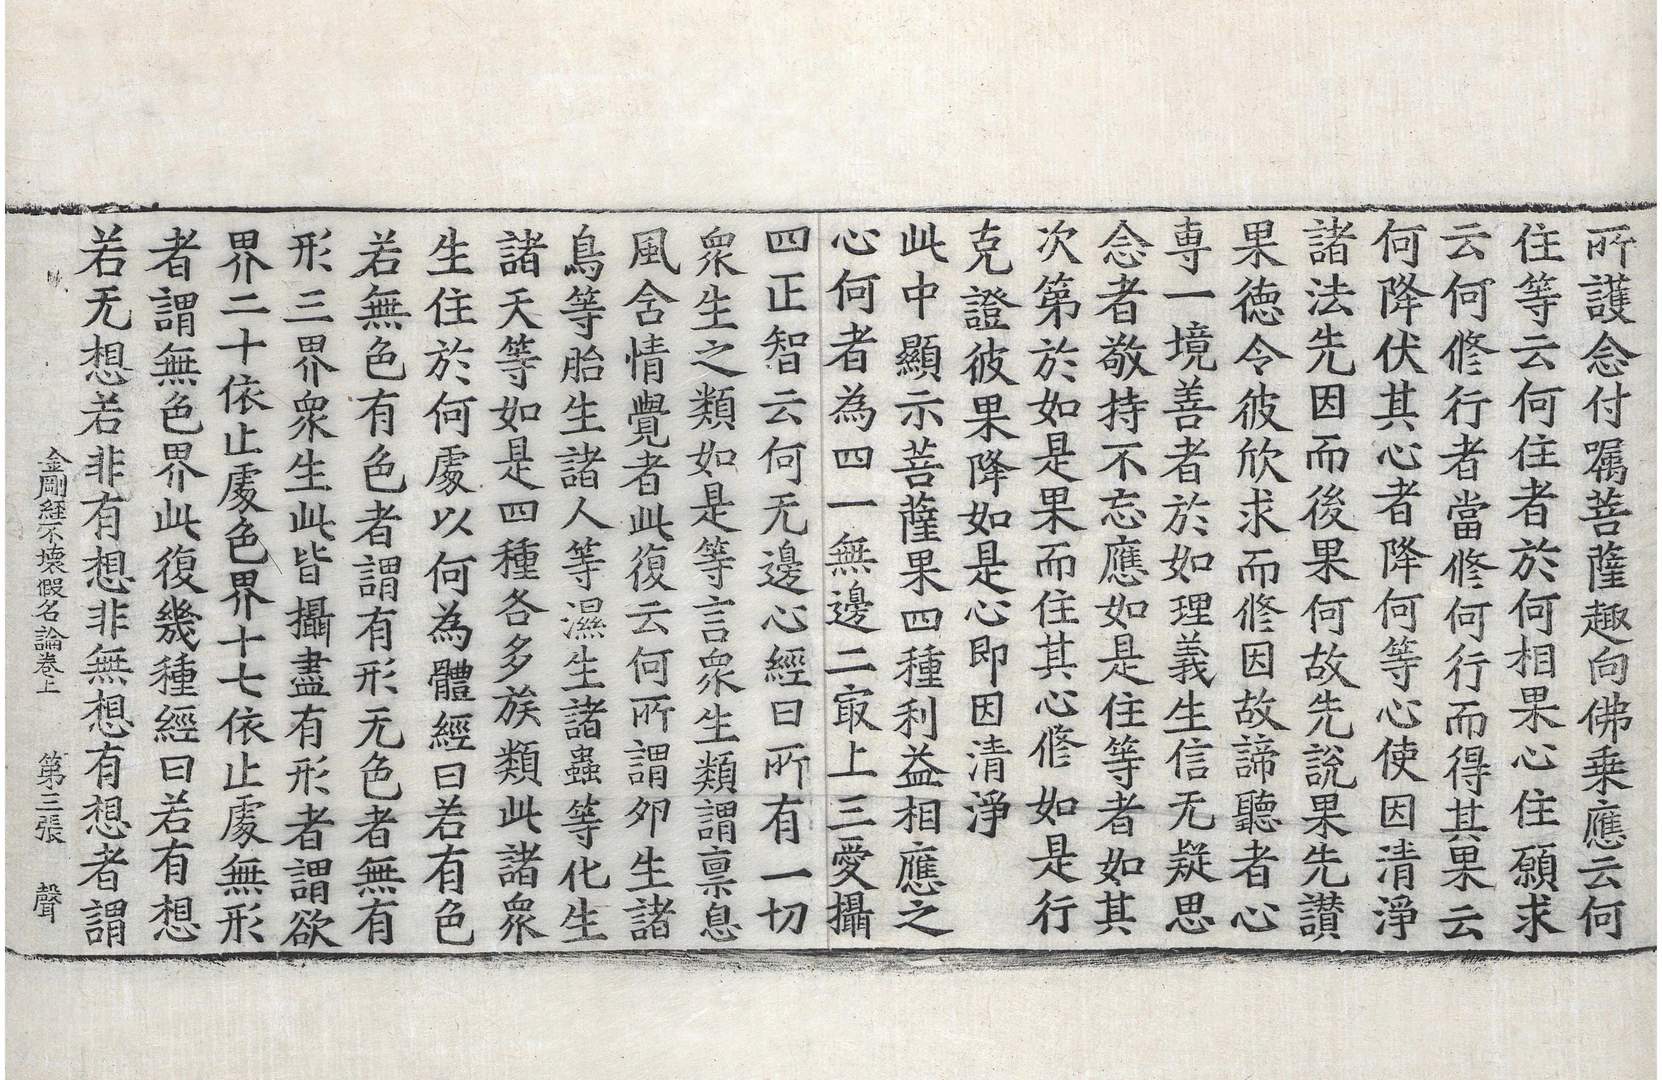 所護念付嘱菩薩趣向佛乗應云何
住等云何住者於何相果心住願求
云何修行者當修何行而得其果云
何降伏其心者降何等心使因清淨
諸法先因而後果何故先說果先讃
果徳令彼欣求而修因故諦聽者心
専一境善者於如理義生信无疑思
念者敬持不忘應如是住等者如其
次第於如是果而住其心修如是行
克證彼果降如是心即因清淨
此中顯示菩薩果四種利益相應之
心何者為四一無邊二㝡上三愛攝
四正智云何无邊心經曰所有一切
衆生之類如是等言衆生類謂禀息
風含情覺者此復云何所謂夘生諸
鳥等胎生諸人等濕生諸蟲等化生
諸天等如是四種各多族類此諸衆
生住於何處以何為體經曰若有色
若無色有色者謂有形无色者無有
形三界衆生此皆攝盡有形者謂欲
界二十依止處色界十七依止處無形
者謂無色界此復幾種經曰若有想
若无想若非有想非無想有想者謂
金剛經不壊假名論卷上　第三張　聲